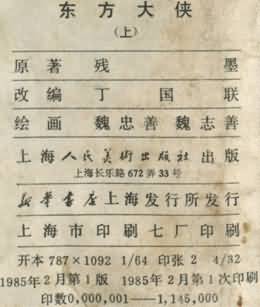 东方大侠
（上）
原著 残墨
改编 丁国联
绘画 魏忠善 魏志善
上海人民美術出版社出版
上海长乐路672弄33号
新华书店上海发行所发行
上海市印刷七厂印刷
开本787×1092 1/64 印张2 4/32
1985年2月第1版 1985年2月第1次印刷
印数0,000,001——1,145,000